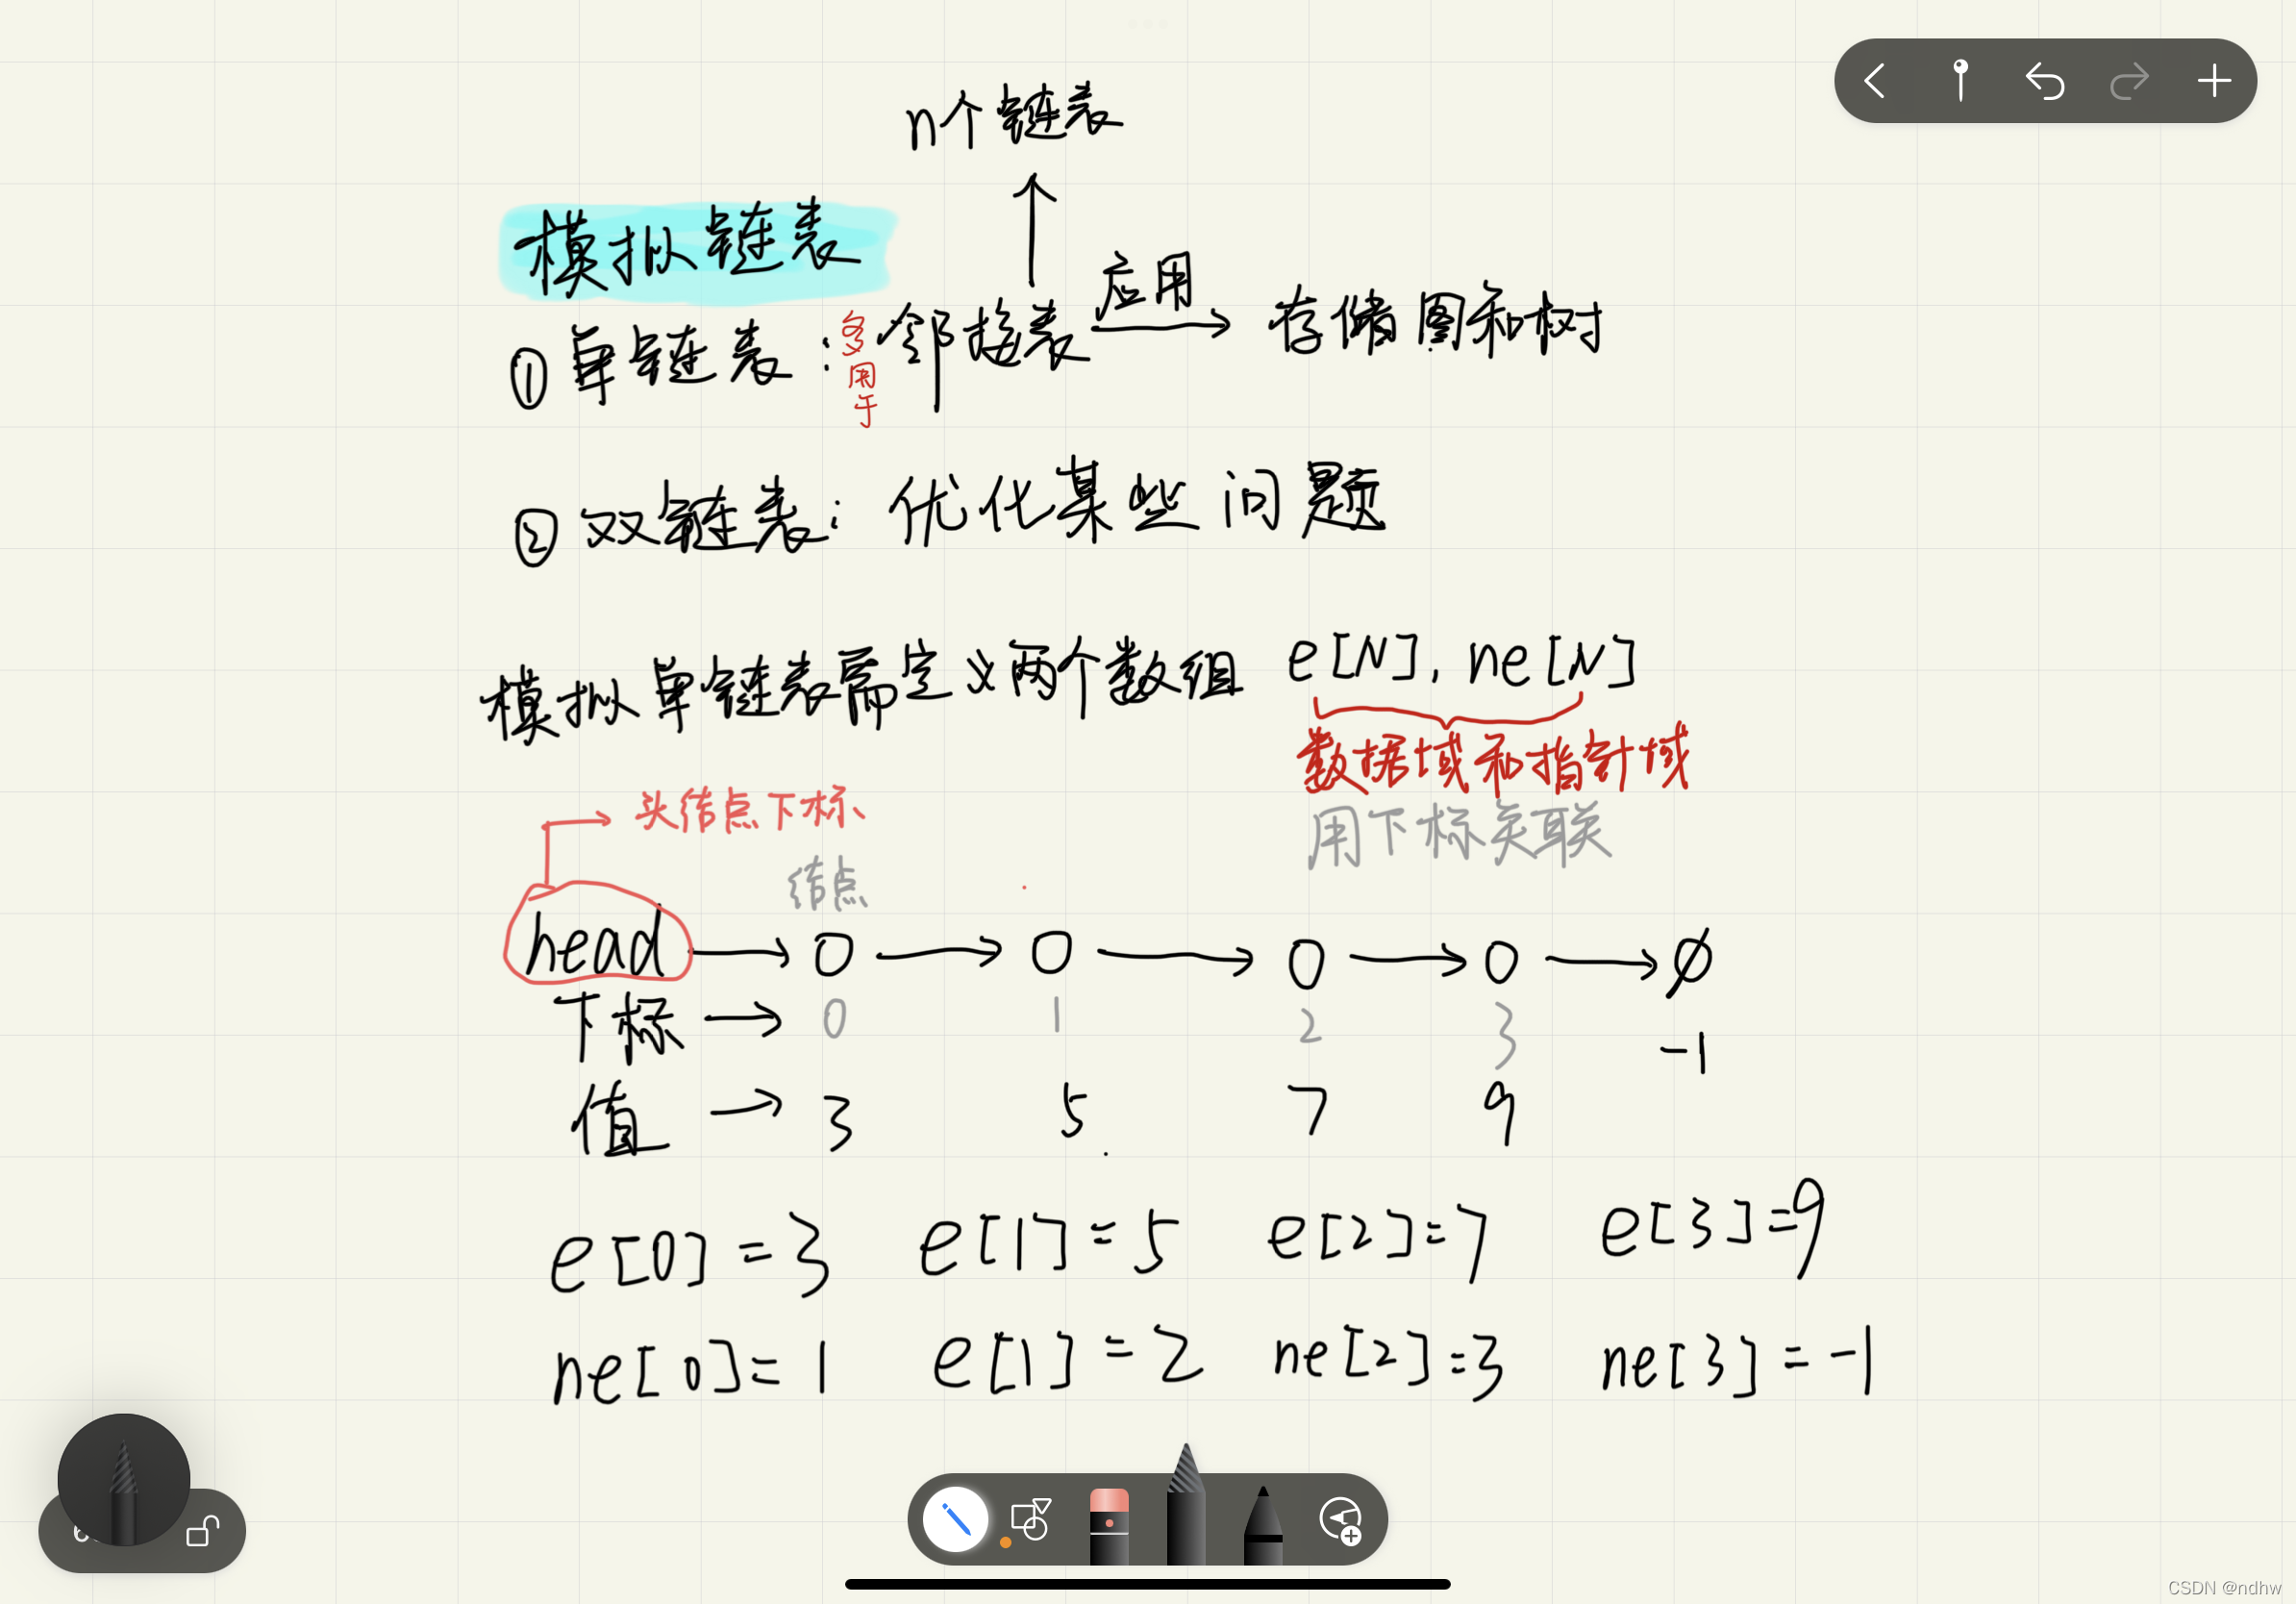 n个链表
模拟链表
①单链表：多用于 邻接表 应用 存储图和树
②双链表：优化某些问题
模拟单链表需定义两个数组 e[N], ne[N]
数据域和指针域
用下标关联
头结点下标
结点
head → 0 → 0 → 0 → 0 → ∅
下标 → 0 1 2 3 -1
值 → 3 5 7 9
e[0]=3 e[1]=5 e[2]=7 e[3]=9
ne[0]=1 e[1]=2 ne[2]=3 ne[3]=-1
CSDN @ndhw